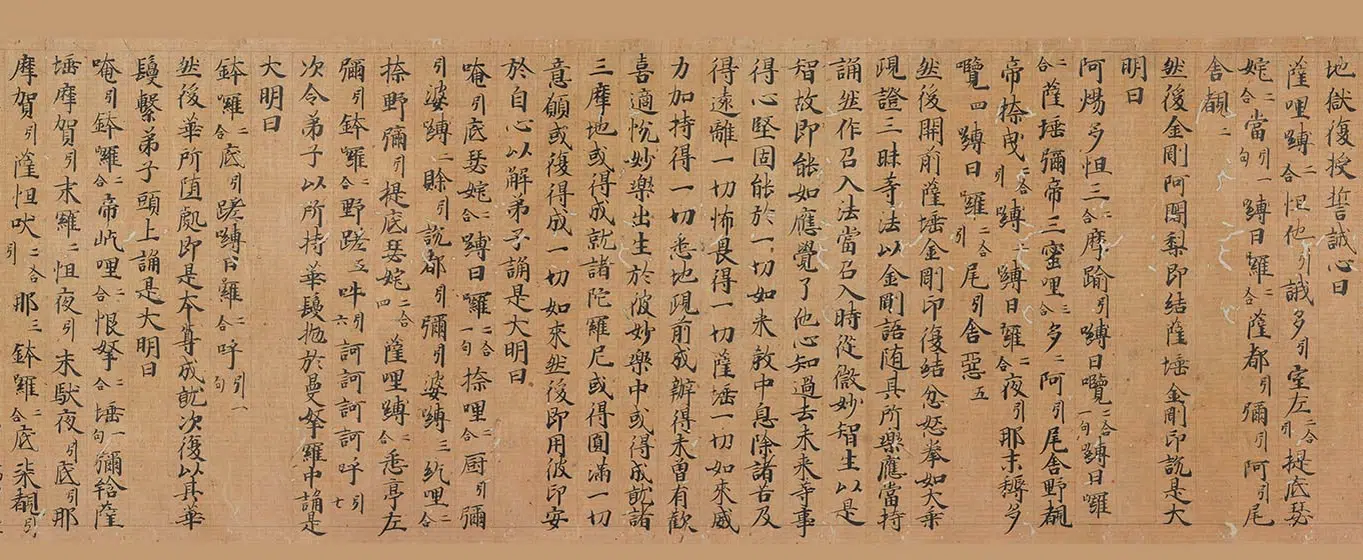 地獄復授誓誠心曰
薩哩嚩二合怛他引誐多引室左二合引提底瑟
姹二合當引一句嚩日囉二合薩都引彌引阿引尾
舍覩二
然後金剛阿闍梨即結薩埵金剛印說是大
明曰
阿煬多怛三合摩踰引嚩日囕二合一句嚩日囉
二合薩埵彌帝三蜜哩三合多二阿引尾舍野覩
帝捺曵二合引嚩嚩日囉二合夜引那末耨多
囕四嚩日囉二合引尾引舍惡五
然後開前薩埵金剛印復結忿怒拳如大乗
現證三昧等法以金剛語随其所樂應當持
誦然作召入法當召入時從微妙智生以是
智故即能如應覺了他心知過去未来等事
得心堅固能於一切如来教中息除諸苦及
得遠離一切怖畏得一切薩埵一切如來威
力加持得一切悉地現前成辦得未曽有歡
喜適悅妙樂出生於彼妙樂中或得成就諸
三摩地或得成就諸陀羅尼或得圓滿一切
意願或復得成一切如來然後即用彼印安
於自心以解弟子誦是大明曰
唵引底瑟姹二合嚩日囉二合一句捺哩二合厨引彌
引婆嚩二賒引說都彌引婆嚩三紇哩二合
捺野彌引提底瑟姹二合四薩哩嚩二合悉亭左
彌引鉢囉二合野蹉五吽引六訶訶訶訶呼引七
次令弟子以所持華鬘抛於曼拏羅中誦是
大明曰
鉢囉二合底引蹉嚩日囉二合呼引一句
然後華所堕處即是本尊成就次復以其華
鬘繫弟子頭上誦是大明曰
唵引鉢囉二合帝屹哩二合恨拏二合埵一句彌 薩
埵摩賀引末羅二怛夜引末馱夜引底引那
摩賀引薩怛吠二合引那三鉢囉二合底 覩引